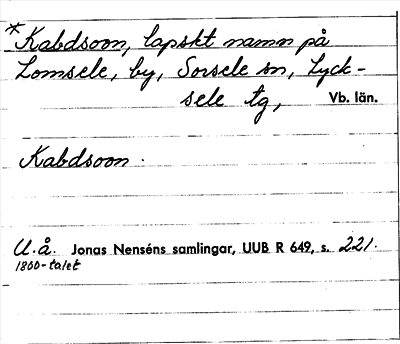 * Kabdsoon, lapskt namn på
Lomsele, by, Sorsele sn, Lyck-
sele tg, Vb. län.
Kabdsoon.
U.å. Jonas Nenséns samlingar, UUB R 649, s. 221.
1800-talet